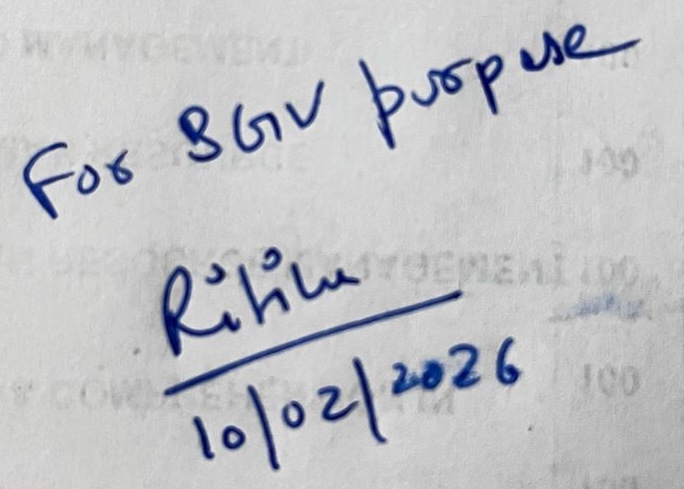 For BGV purpose
Ritika
10/02/2026
100
100